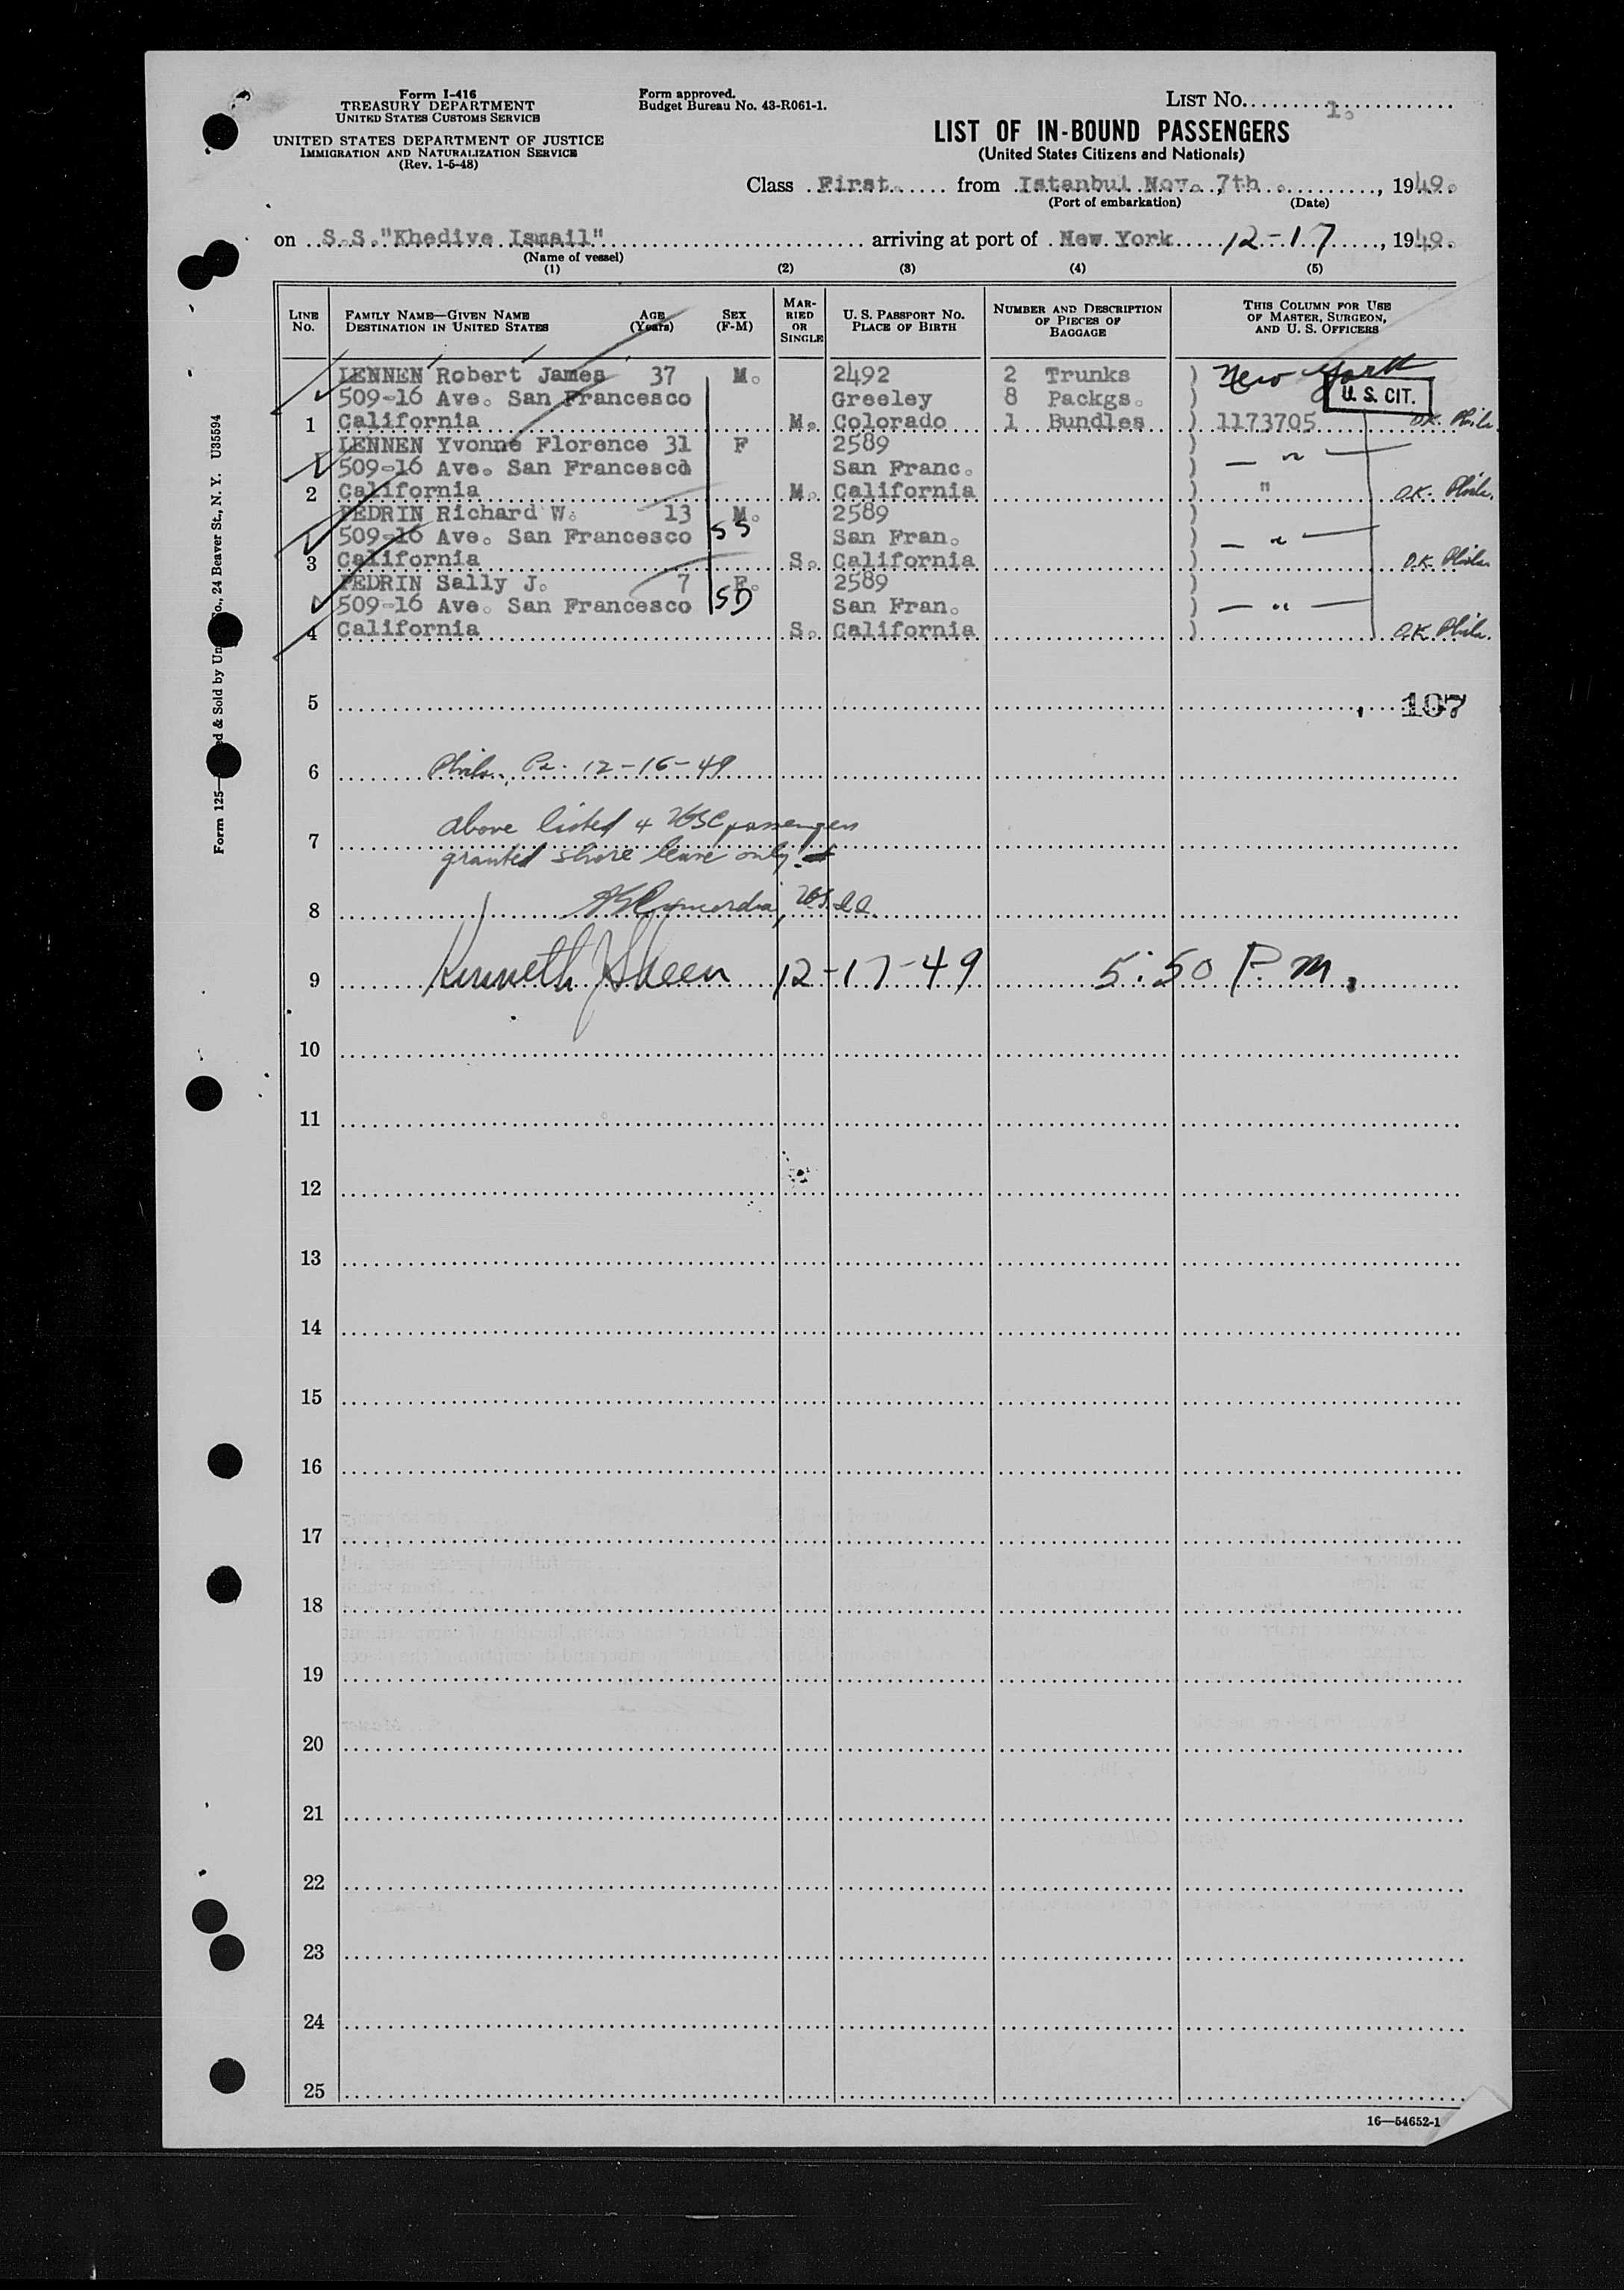 Form I-416
TREASURY DEPARTMENT
UNITED STATES CUSTOMS SERVICE
UNITED STATES DEPARTMENT OF JUSTICE
IMMIGRATION AND NATURALIZATION SERVICE
(Rev. 1-5-48)
Form approved.
Budget Bureau No. 43-R061-1.
LIST No. 1.
LIST OF IN-BOUND PASSENGERS
(United States Citizens and Nationals)
Class First. from Istanbul Nov. 7th, 1949.
(Port of embarkation) (Date)
on S.S."Khedive Ismail" arriving at port of New York 12-17, 1949.
(Name of vessel)
(1) (2) (3) (4) (5)
LINE No. FAMILY NAME—GIVEN NAME DESTINATION IN UNITED STATES AGE (Years) SEX (F-M) MARRIED OR SINGLE U. S. PASSPORT No. PLACE OF BIRTH NUMBER AND DESCRIPTION OF PIECES OF BAGGAGE THIS COLUMN FOR USE OF MASTER, SURGEON, AND U. S. OFFICERS
LENNEN Robert James 37 M. 2492 2 Trunks ) New York
509-16 Ave. San Francesco Greeley 8 Packgs. ) U. S. CIT.
1 California M. Colorado 1 Bundles ) 1173705 O.K. Phila.
LENNEN Yvonne Florence 31 F 2589 )
509-16 Ave. San Francesco San Franc. ) — " —
2 California M. California ) " O.K. Phila.
PEDRIN Richard W. 13 M. 2589 )
509-16 Ave. San Francesco SS San Fran. ) — " —
3 California S. California ) O.K. Phila.
PEDRIN Sally J. 7 F. 2589 )
509-16 Ave. San Francesco SD San Fran. ) — " —
4 California S. California ) O.K. Phila.
5 107
6 Phila., Pa. 12-16-49
7 above listed 4 USC passengers
granted shore leave only.
8
9 Kenneth J Skeen 12-17-49 5:50 P.M.
10
11
12
13
14
15
16
17
18
19
20
21
22
23
24
25
16—54652-1
Form 125— & Sold by Co., 24 Beaver St., N. Y. U35594